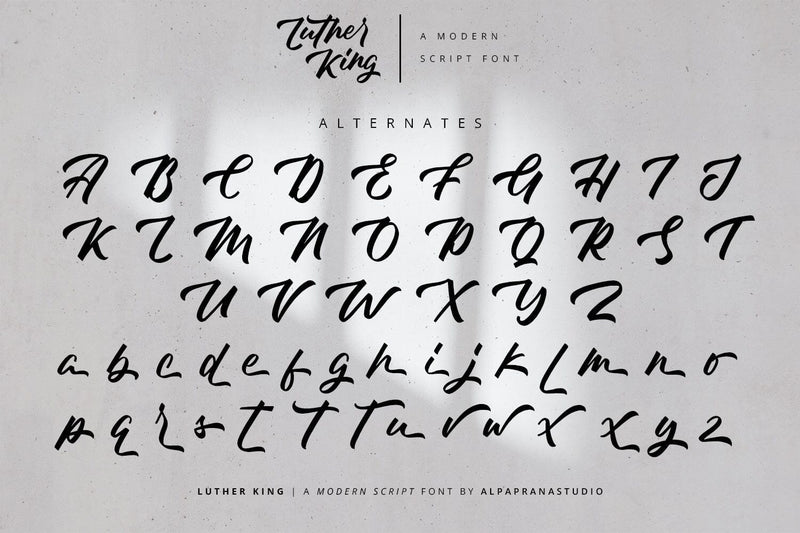 Luther
King
A MODERN
SCRIPT FONT
ALTERNATES
A B C D E F G H I J
K L M N O P Q R S T
U V W X Y Z
a b c d e f g h i j k l m n o
p q r s t T T u v w x x y z
LUTHER KING | A MODERN SCRIPT FONT BY ALPAPRANASTUDIO